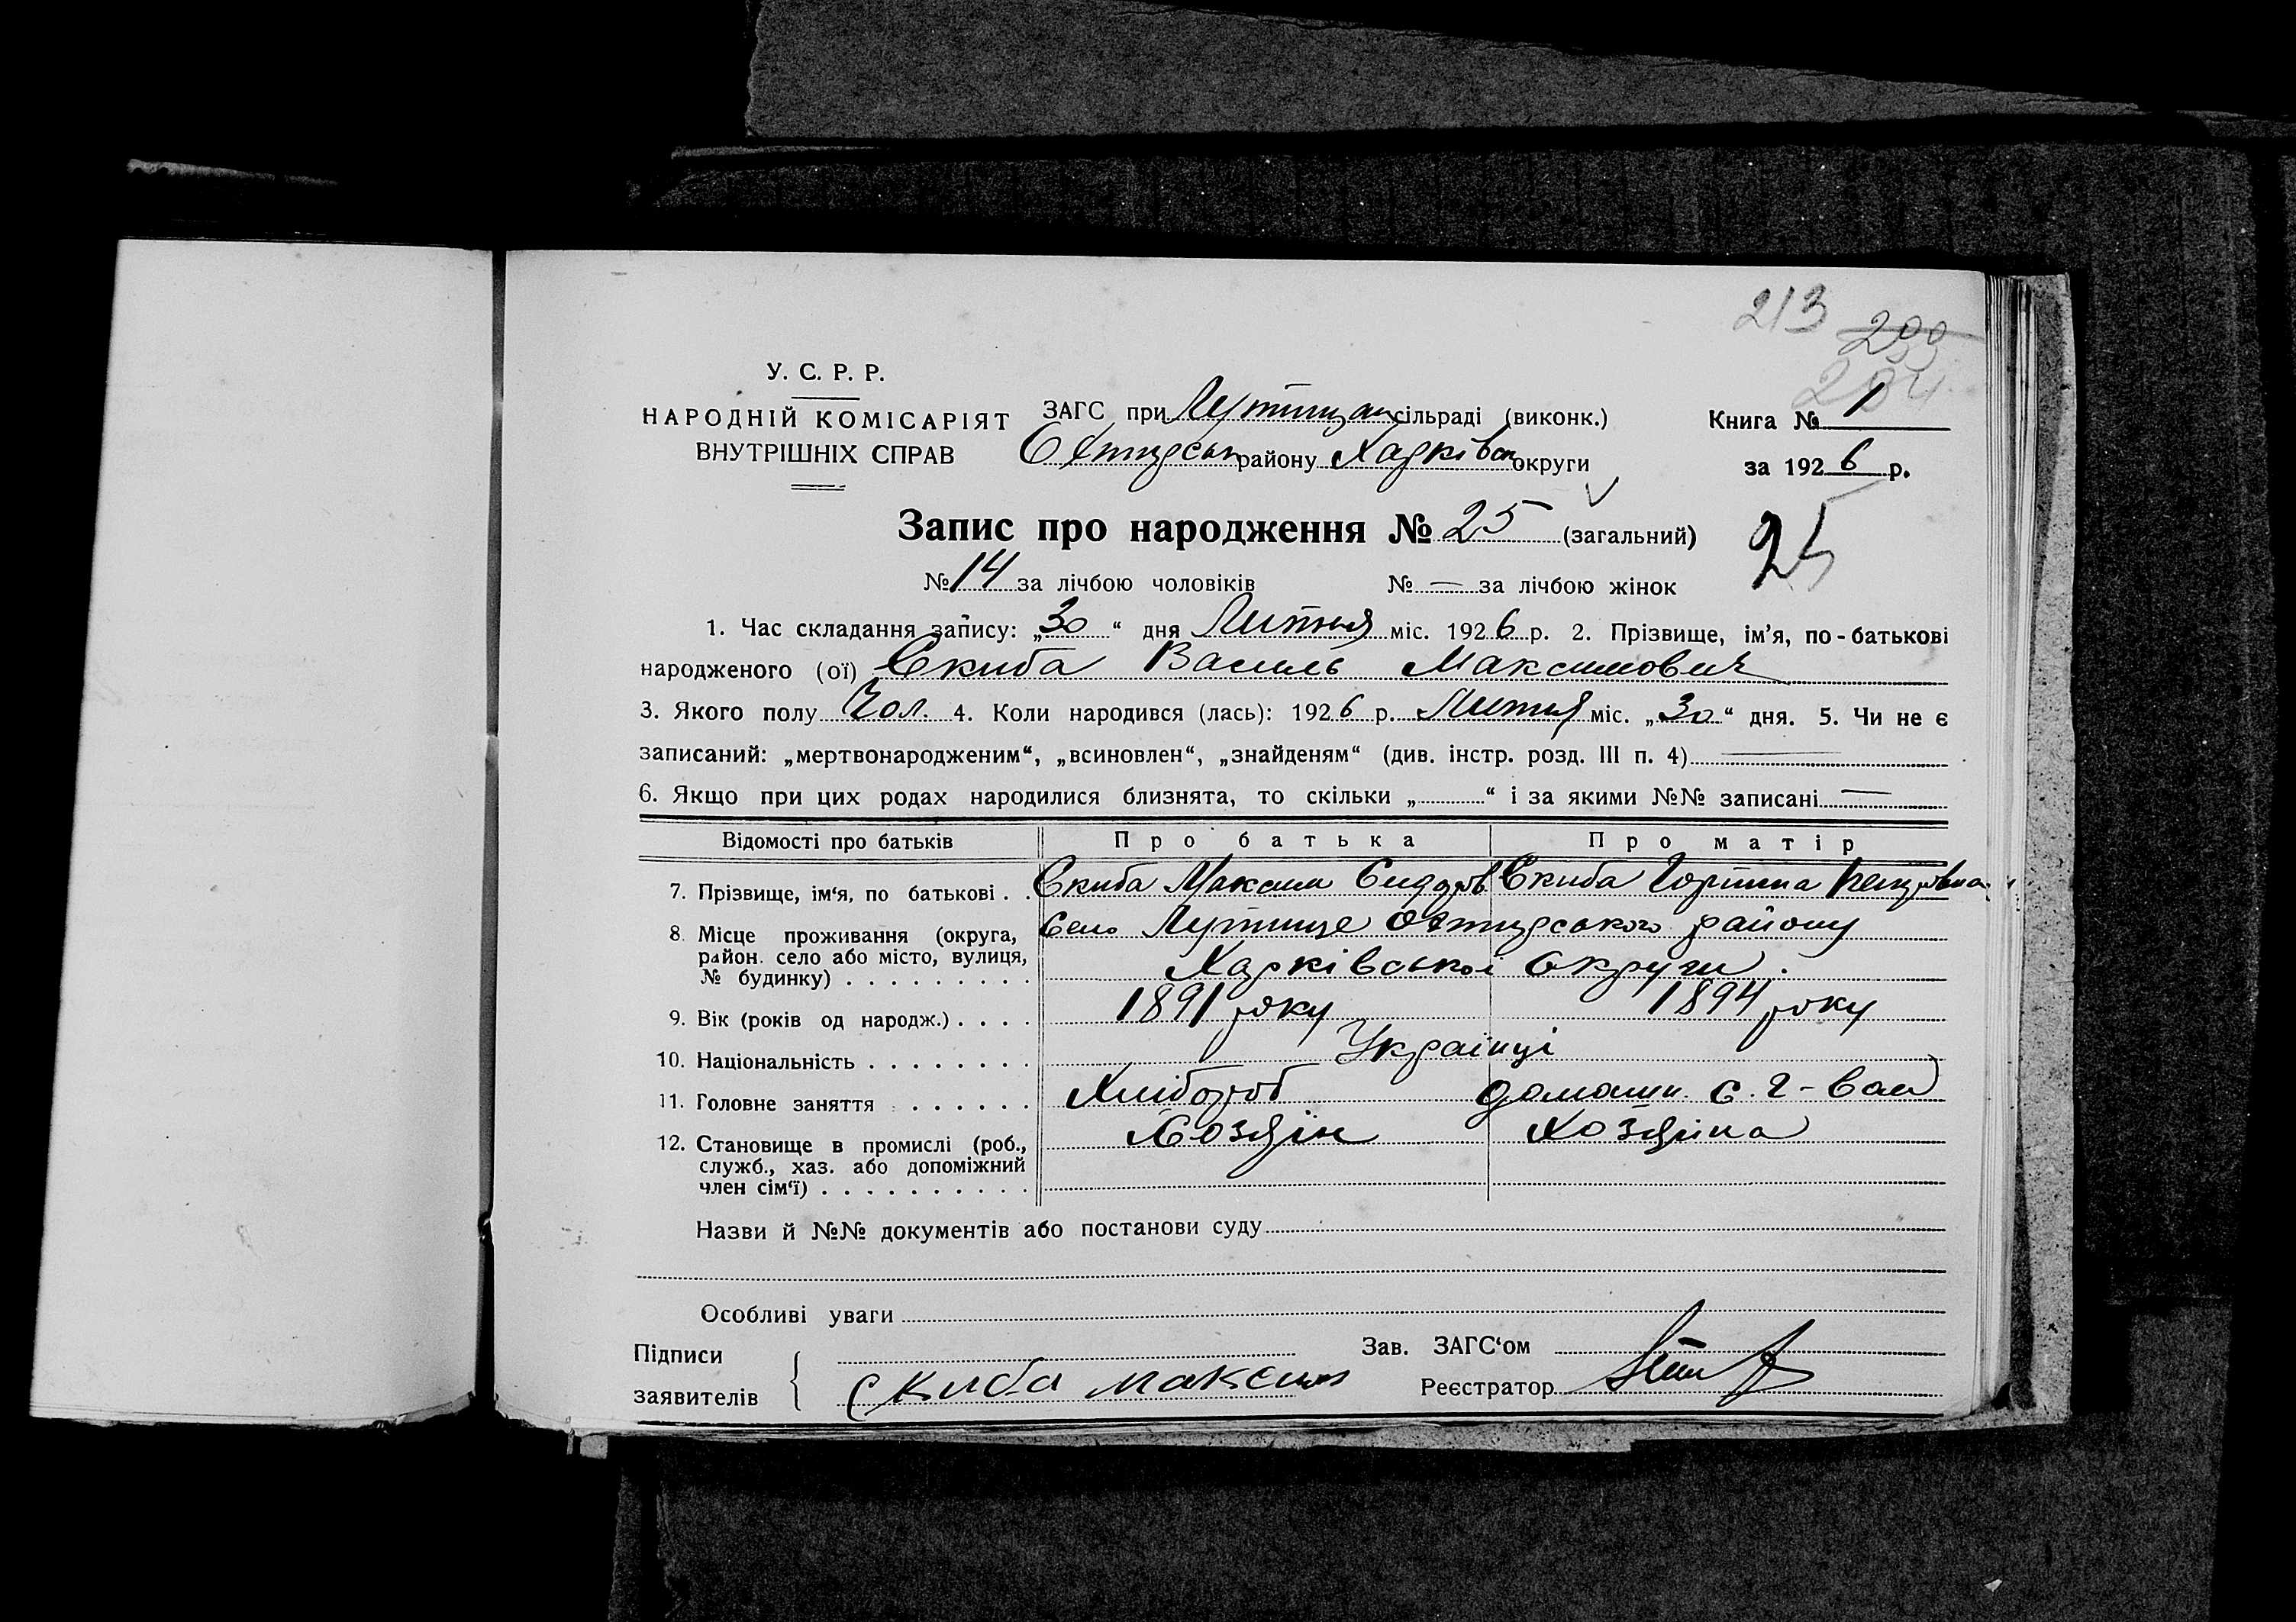 213 200
204
У. С. Р. Р.
НАРОДНІЙ КОМІСАРІЯТ
ВНУТРІШНІХ СПРАВ
ЗАГС при Лутищан сільраді (виконк.)
Охтирськ району Харківськ округи
Книга № 1
за 1926 р.
Запис про народження № 25 (загальний)
25
№ 14 за лічбою чоловіків № — за лічбою жінок
1. Час складання запису: „30“ дня Липня міс. 1926 р. 2. Прізвище, ім’я, по-батькові
народженого (ої) Скиба Василь Максимович
3. Якого полу Чол. 4. Коли народився (лась): 1926 р. Липня міс. „30“ дня. 5. Чи не є
записаний: „мертвонародженим“, „всиновлен“, „знайденям“ (див. інстр. розд. III п. 4) —
6. Якщо при цих родах народилися близнята, то скільки „ “ і за якими №№ записані —
Відомості про батьків Про батька Про матір
7. Прізвище, ім‘я, по батькові . . Скиба Максим Сидоров Скиба Горпина
8. Місце проживання (округа, район. село або місто, вулиця, № будинку) . . . . . . . . .
Село Лутище Охтирського району
Харківської округи.
9. Вік (років од народж.) . . . . 1891 року 1894 року
10. Національність . . . . . . . . Українці
11. Головне заняття . . . . . . Хлібороб домашн. с. г-вом
12. Становище в промислі (роб., служб., хаз. або допоміжний член сім‘ї) . . . . . . . . . .
Хозяін Хозяіка
Назви й №№ документів або постанови суду
Особливі уваги
Підписи
заявителів
Скиба Максим
Зав. ЗАГС‘ом
Реєстратор